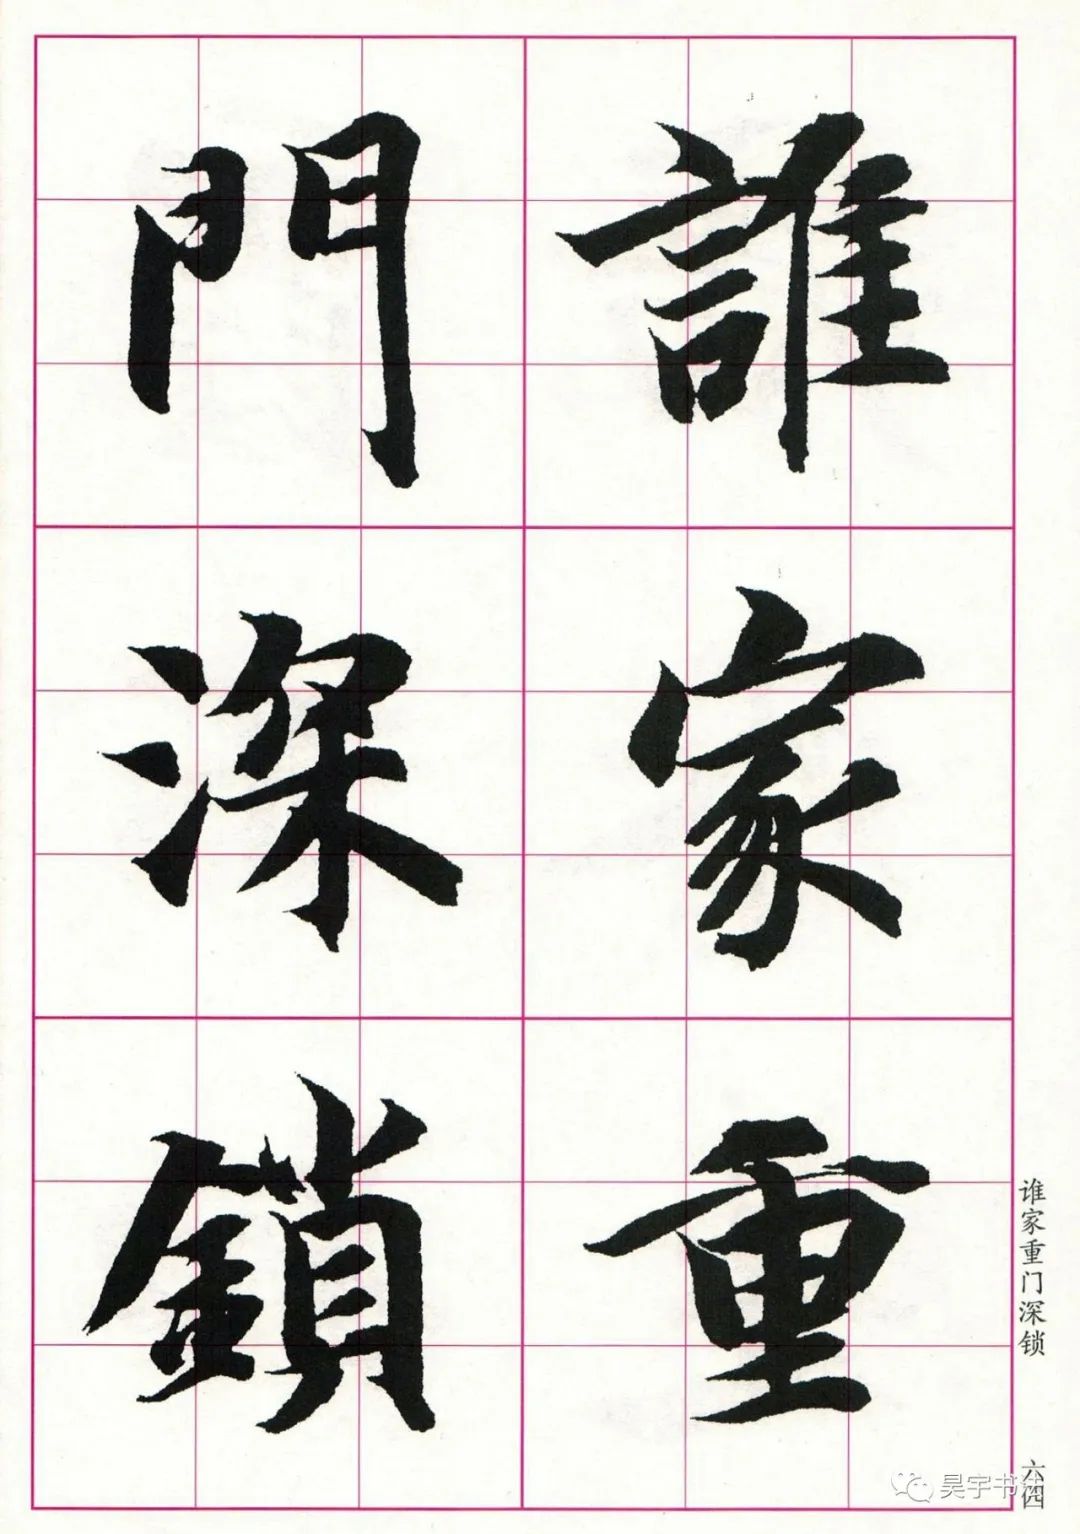 誰家重
門深鎖
谁家重门深锁
六四
昊宇书法